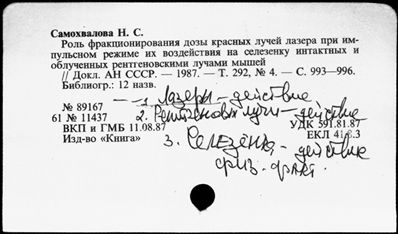 Самохвалова Н. С.
Роль фракционирования дозы красных лучей лазера при им-
пульсном режиме их воздействия на селезенку интактных и
облученных рентгеновскими лучами мышей
// Докл. АН СССР. — 1987. — Т. 292, № 4. — С. 993—996.
Библиогр.: 12 назв.
1. Лазеры - действие
№ 89167
2. Рентгеновск лучи - действие
61 № 11437 УДК 591.81.87
ВКП и ГМБ 11.08.87 ЕКЛ
Изд-во «Книга»
3. Селезёнка - действие
физ. факт.